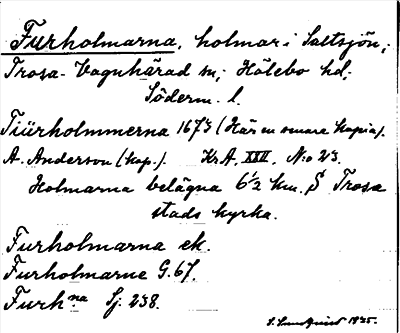 Furholmarna, holmar i Saltsjön,
Trosa-Vagnhärad sn; Hölebo hd,
Söderm. l.
Tiürholmmerna 1673 (Här en senare kopia).
A. Anderson (kop.). Kr A. XXII, N:o 23.
Holmarna belägna 6½ km. S Trosa
stads kyrka.
Furholmarna ek.
Furholmarne G. 67.
Furh:na Sj. 238.
S. Lundquist 1925.